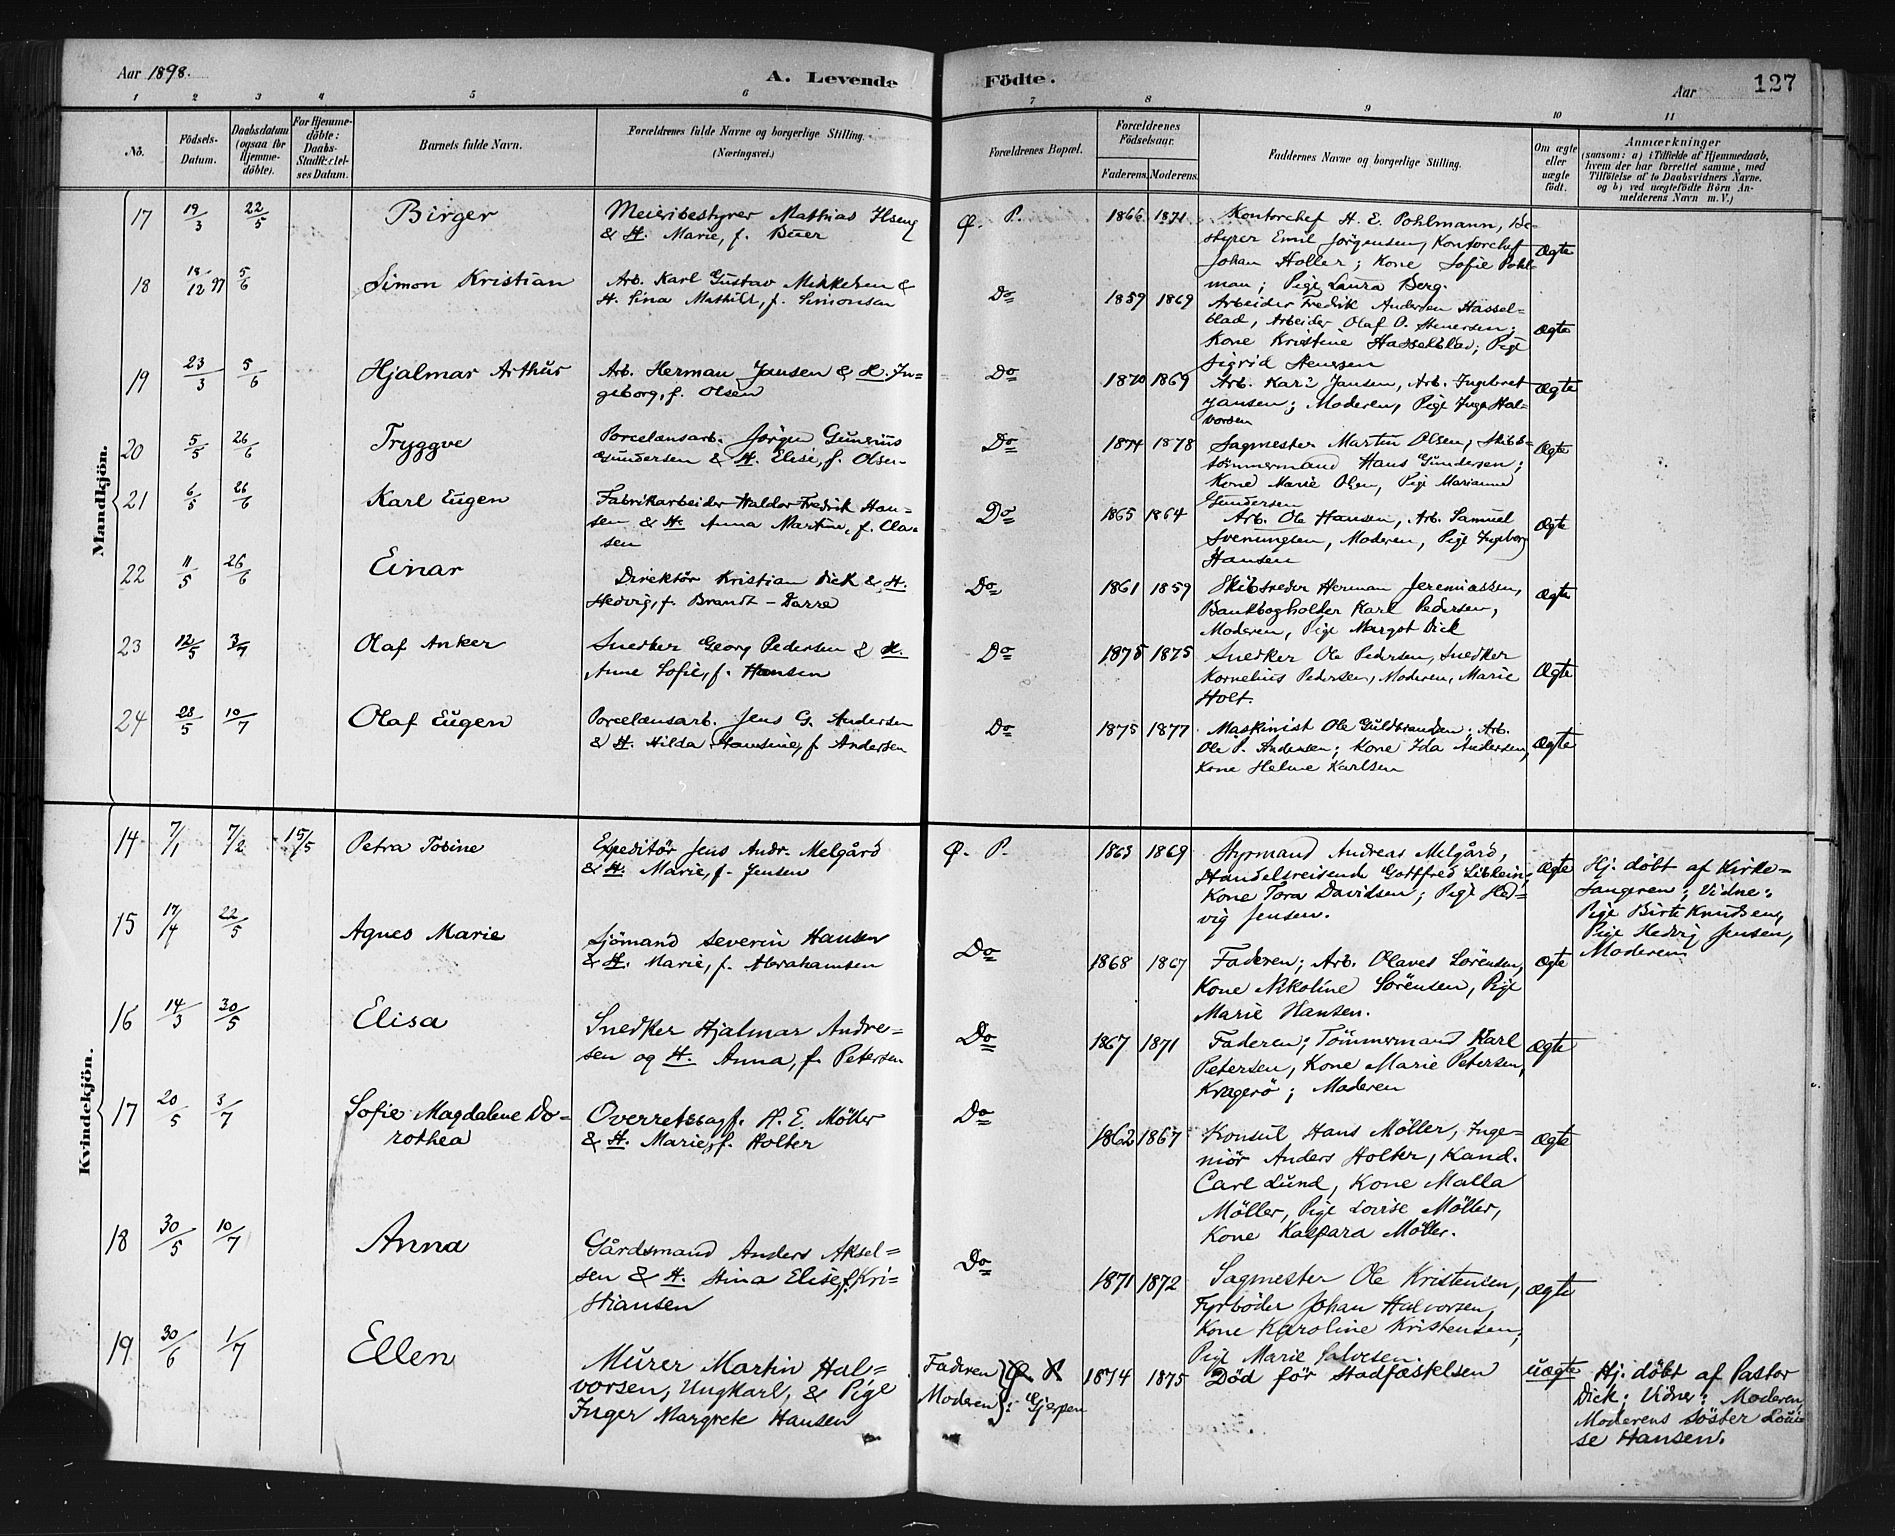 Aar 1898.
A. Levende
Födte.
Aar
127
1 2 3 4 5 6 7 8 9 10 11
No.
Födsels-
Datum.
Daabsdatum
(ogsaa for
Hjemme-
döbte).
For Hjemme-
döbte:
Daabs-
Stadfæstel-
ses Datum.
Barnets fulde Navn.
Forældrenes fulde Navne og borgerlige Stilling.
(Næringsvei.)
Forældrenes Bopæl.
Forældrenes
Födselsaar.
Faderens. Moderens.
Faddernes Navne og borgerlige Stilling.
Om ægte
eller
uægte
födt.
Anmærkninger
(saasom: a) i Tilfælde af Hjemmedaab,
hvem der har forrettet samme, med
Tilföielse af to Daabsvidners Navne,
og b) ved uægtefödte Börn An-
melderens Navn m. V.)
Mandkjön.
17 19/3 22/5 Birger
Meieribestyrer Mathias Ilseng
& H. Marie, f. Buer
Ø. P. 1866 1871
Kontorchef H. E. Pohlmann, Be-
styrer Emil Jörgensen, Kontorchef
Johan Holler; Kone Sofie Pohl-
man; Pige Laura Berg.
Ægte
18 18/12 97 5/6 Simon Kristian
Arb. Karl Gustav Mikkelsen &
H. Sina Mathild, f. Simonsen
Do 1859 1869
Arbeider Fredrik Andersen Hassel-
blad, Arbeider Olaf O. Stenersen;
Kone Kristine Hasselblad; Pige
Sigrid Stensen
Ægte
19 23/3 5/6 Hjalmar Arthur
Arb. Herman Jansen & H. In-
geborg, f. Olsen
Do 1870 1869
Arb. Karl Jansen, Arb. Ingebret
Jansen; Moderen, Pige Inga Hal-
vorsen
Ægte
20 5/5 26/6 Tryggve
Porcelænsarb. Jörgen Gunerius
Gundersen & H. Elise, f. Olsen
Do 1874 1878
Sagmester Martin Olsen, Skibs-
tömmermand Hans Gundersen;
Kone Marie Olsen, Pige Marianne
Gundersen
Ægte
21 6/5 26/6 Karl Eugen
Fabrikarbeider Haldor Fredrik Han-
sen & H. Anna Martine, f. Cla-
sen
Do 1865 1864
Arb. Ole Hansen, Arb. Samuel
Svenungsen, Moderen, Pige Ingeborg
Hansen
Ægte
22 11/5 26/6 Einar
Direktör Kristian Dick & H.
Hedvig, f. Brandt-Darre
Do 1861 1859
Skibsreder Herman Jeremiassen,
Bankbogholder Karl Pedersen,
Moderen, Pige Margot Dick
Ægte
23 12/5 3/7 Olaf Anker
Snedker Georg Pedersen & H.
Anne Sofie, f. Hansen
Do 1875 1875
Snedker Ole Pedersen, Snedker
Kornelius Pedersen, Moderen, Marie
Holt.
Ægte
24 28/5 10/7 Olaf Eugen
Porcelænsarb. Jens G. Andersen
& H. Hilda Hansine, f. Andersen
Do 1875 1877
Maskinist Ole Guldbrandsen, Arb.
Ole P. Andersen; Kone Ida Andersen,
Kone Helene Karlsen
Ægte
Kvindekjön.
14 7/1 7/2 15/5 Petra Tobine
Expeditör Jens Andr. Melgård
& H. Marie, f. Jensen
Ø. P. 1863 1869
Styrmand Andreas Melgård,
Handelsreisend Gottfred Liblein;
Kone Tora Davidsen; Pige Hed-
vig Jensen.
Ægte
Hj. döbt af Kirke-
sangeren; Vidne:
Pige Birte Knudsen,
Pige Hedvig Jensen,
Moderen
15 17/4 22/5 Agnes Marie
Sjömand Severin Hansen
& H. Marie, f. Abrahamsen
Do 1868 1867
Faderen; Arb. Olaves Sörensen,
Kone Nikoline Sörensen, Pige
Marie Hansen.
Ægte
16 14/3 30/5 Elisa
Snedker Hjalmar Andre-
sen og H. Anna, f. Petersen
Do 1867 1871
Faderen; Tömmermand Karl
Petersen, Kone Marie Petersen,
Kragerö; Moderen
Ægte
17 20/5 3/7 Sofie Magdalene Do-
rothea
Overretssagf. H. E. Möller
& H. Marie, f. Holter
Do 1862 1867
Konsul Hans Möller, Inge-
niör Anders Holter, Kand.
Carl Lund, Kone Malla
Möller, Pige Lovise Möller,
Kone Kaspara Möller.
Ægte
18 30/5 10/7 Anna
Gårdsmand Anders Aksel-
sen & H. Stina Elise, f. Kri-
stiansen
Do 1871 1872
Sagmester Ole Kristensen,
Fyrböder Johan Halvorsen,
Kone Karoline Kristensen,
Pige Marie Salvesen.
Ægte
19 30/6 1/7 Ellen
Murer Martin Hal-
vorsen, Ungkarl, & Pige
Inger Margrete Hansen
Faderen } Ø. P.
Moderen }: Gjerpen
1874 1875 Död för Stadfæstelsen
uægte
Hj. döbt af Pastor
Dick; Vidner: Moderen,
Moderens söster Loui-
se Hansen.